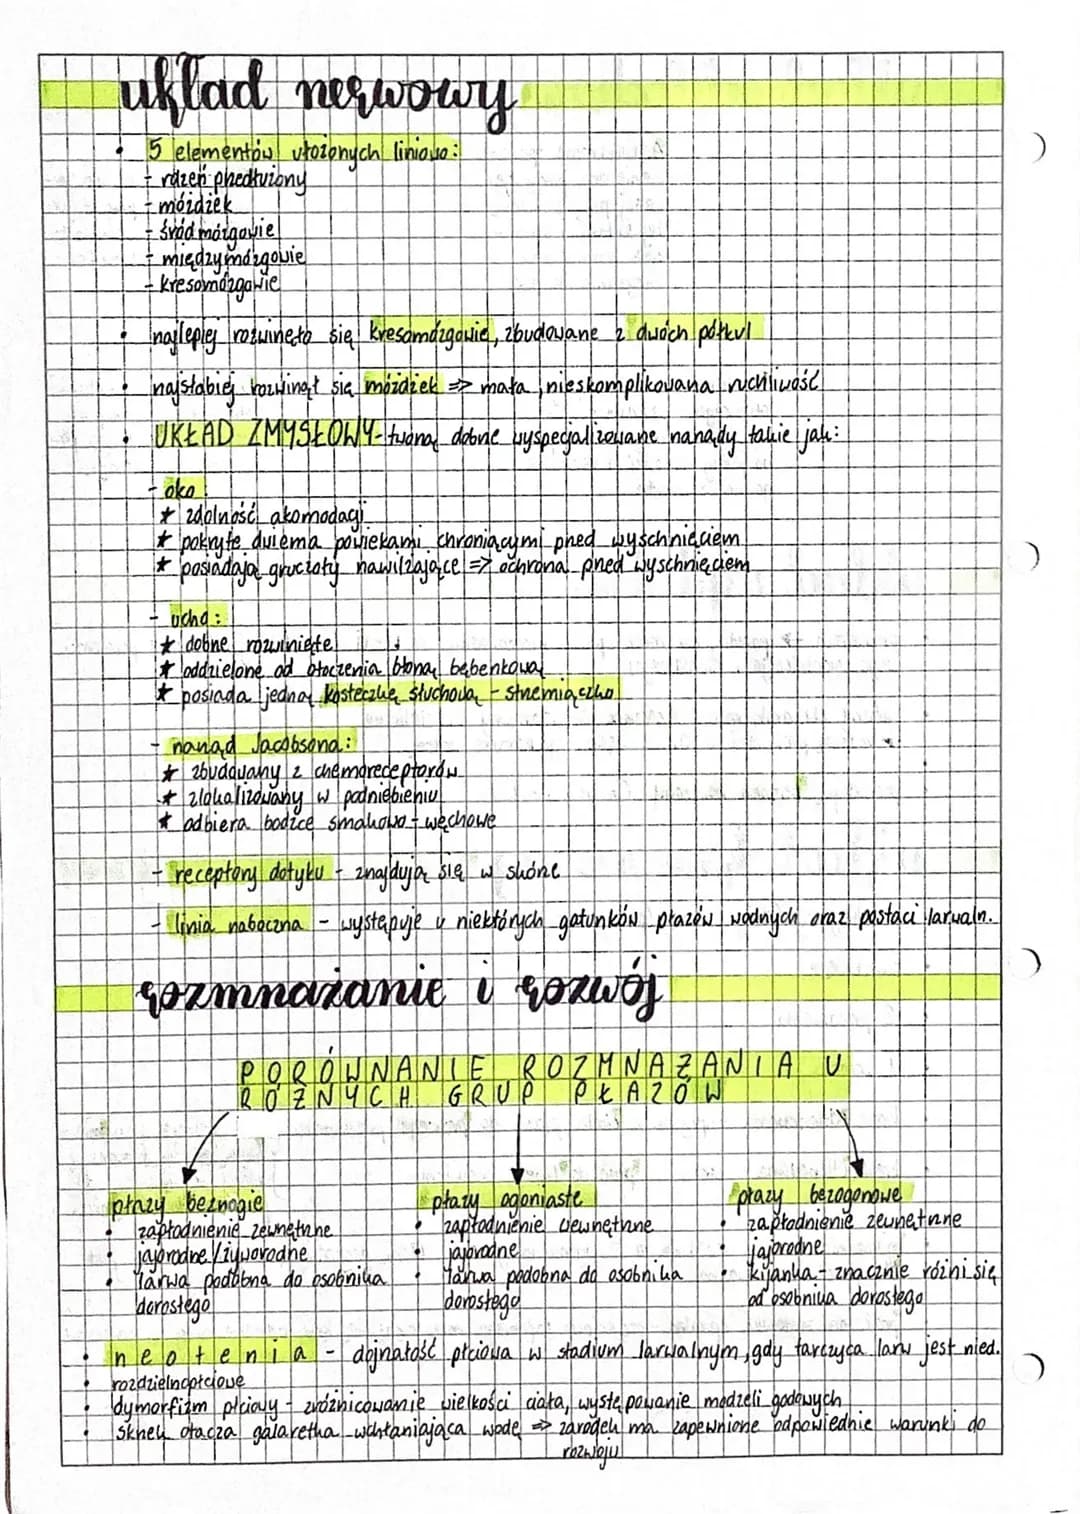 układ nerwowy
• 5 elementów ułożonych liniowo:
- rdzeń przedłużony
- móżdżek
- śródmózgowie
- międzymózgowie
- kresomózgowie
• najlepiej rozwinęło się kresomózgowie, zbudowane z dwóch półkul
• najsłabiej rozwinął się móżdżek => mała, nieskomplikowana ruchliwość
• UKŁAD ZMYSŁOWY - tworzą dobrze wyspecjalizowane narządy takie jak:
- oko:
★ zdolność akomodacji
★ pokryte dwiema powiekami chroniącymi przed wyschnięciem
★ posiadają gruczoły nawilżające => ochrona przed wyschnięciem
- ucho:
★ dobrze rozwinięte
★ oddzielone od otoczenia błoną bębenkową
★ posiada jedną kosteczkę słuchową - strzemiączko
- narząd Jacobsona:
★ zbudowany z chemoreceptorów
★ zlokalizowany w podniebieniu
★ odbiera bodźce smakowo-węchowe
- receptory dotyku - znajdują się w skórze
- linia naboczna - występuje u niektórych gatunków płazów wodnych oraz postaci larwaln.
rozmnażanie i rozwój
PORÓWNANIE ROZMNAŻANIA U
RÓŻNYCH GRUP PŁAZÓW
płazy beznogie
• zapłodnienie zewnętrzne
• jajorodne/żyworodne
• larwa podobna do osobnika
dorosłego
płazy ogoniaste
• zapłodnienie wewnętrzne
• jajorodne
• larwa podobna do osobnika
dorosłego
płazy bezogonowe
• zapłodnienie zewnętrzne
• jajorodne
• kijanka - znacznie różni się
od osobnika dorosłego
• neotenia - dojrzałość płciowa w stadium larwalnym, gdy tarczyca larw jest nied.
• rozdzielnopłciowe
• dymorfizm płciowy - zróżnicowanie wielkości ciała, występowanie modzeli godowych
• skrzek otacza galaretka wchłaniająca wodę => zarodek ma zapewnione odpowiednie warunki do
rozwoju